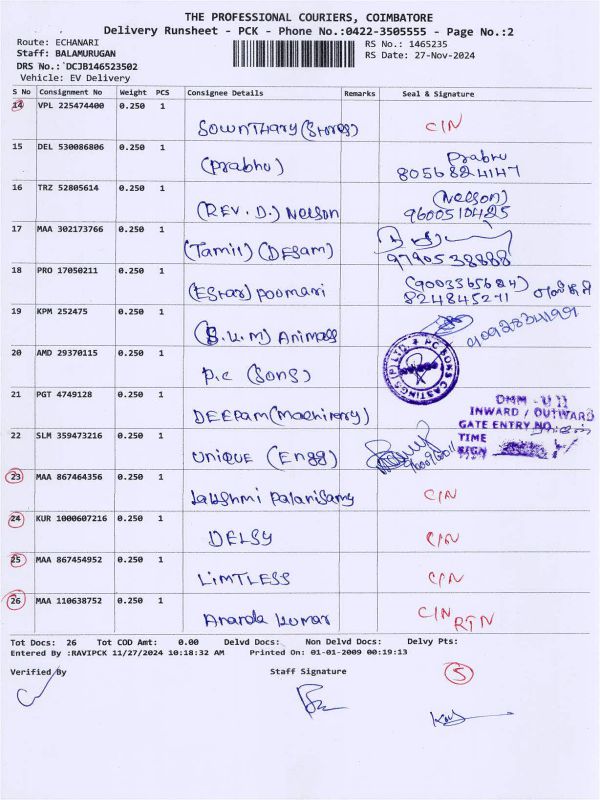 THE PROFESSIONAL COURIERS, COIMBATORE
Delivery Runsheet - PCK - Phone No.:0422-3505555 - Page No.:2
Route: ECHANARI
RS No.: 1465235
Staff: BALAMURUGAN
RS Date: 27-Nov-2024
DRS No.: DCJB146523502
Vehicle: EV Delivery
S No Consignment No Weight PCS Consignee Details Remarks Seal & Signature
14 VPL 225474400 0.250 1
Sownthary (Stores) CIN
15 DEL 530086806 0.250 1
(Prabhu) Prabhu
8056824147
16 TRZ 52805614 0.250 1
(REV. D.) Nelson (Nelson)
9600510425
17 MAA 302173766 0.250 1
(Tamil) (DESam)
9790538888
18 PRO 17050211 0.250 1
(Estar) Poomari
19 KPM 252475 0.250 1
(S.K.M) Animass
20 AMD 29370115 0.250 1
P.C (Sons)
21 PGT 4749128 0.250 1
DEEPAM (Machinery)
DMM - U II
INWARD / OUTWARD
GATE ENTRY NO
TIME
SIGN
22 SLM 359473216 0.250 1
UNIQUE (Engg)
23 MAA 867464356 0.250 1
Lakshmi Palanisamy CIN
24 KUR 1000607216 0.250 1
DELSY CIN
25 MAA 867454952 0.250 1
LIMTLESS CIN
26 MAA 110638752 0.250 1
Ananda kumar CIN
RTN
Tot Docs: 26 Tot COD Amt: 0.00 Delvd Docs: Non Delvd Docs: Delvy Pts:
Entered By :RAVIPCK 11/27/2024 10:18:32 AM Printed On: 01-01-2009 00:19:13
Verified By Staff Signature 5